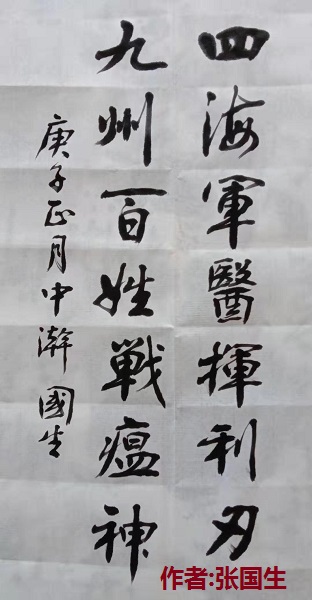 四海軍醫揮利刃
九州百姓戰瘟神
庚子正月中澣國生
作者:张国生